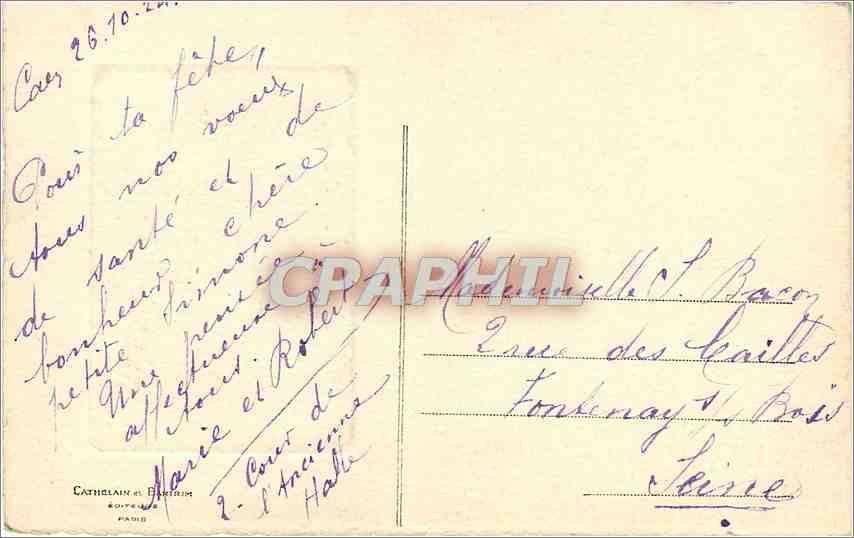 Caen 26.10.24.
Pour ta fête,
tous nos voeux
de santé et de
bonheur chère
petite Simone.
Une pensée
affectueuse à
tous.
Marie et Robert
2 - Cour de
l'Ancienne
Halle
CATHELAIN et BARIRIM
ÉDITEURS
PARIS
CPAPHIL
Mademoiselle S. Bacon
2 rue des Cailles
Fontenay s/s Bois
Seine